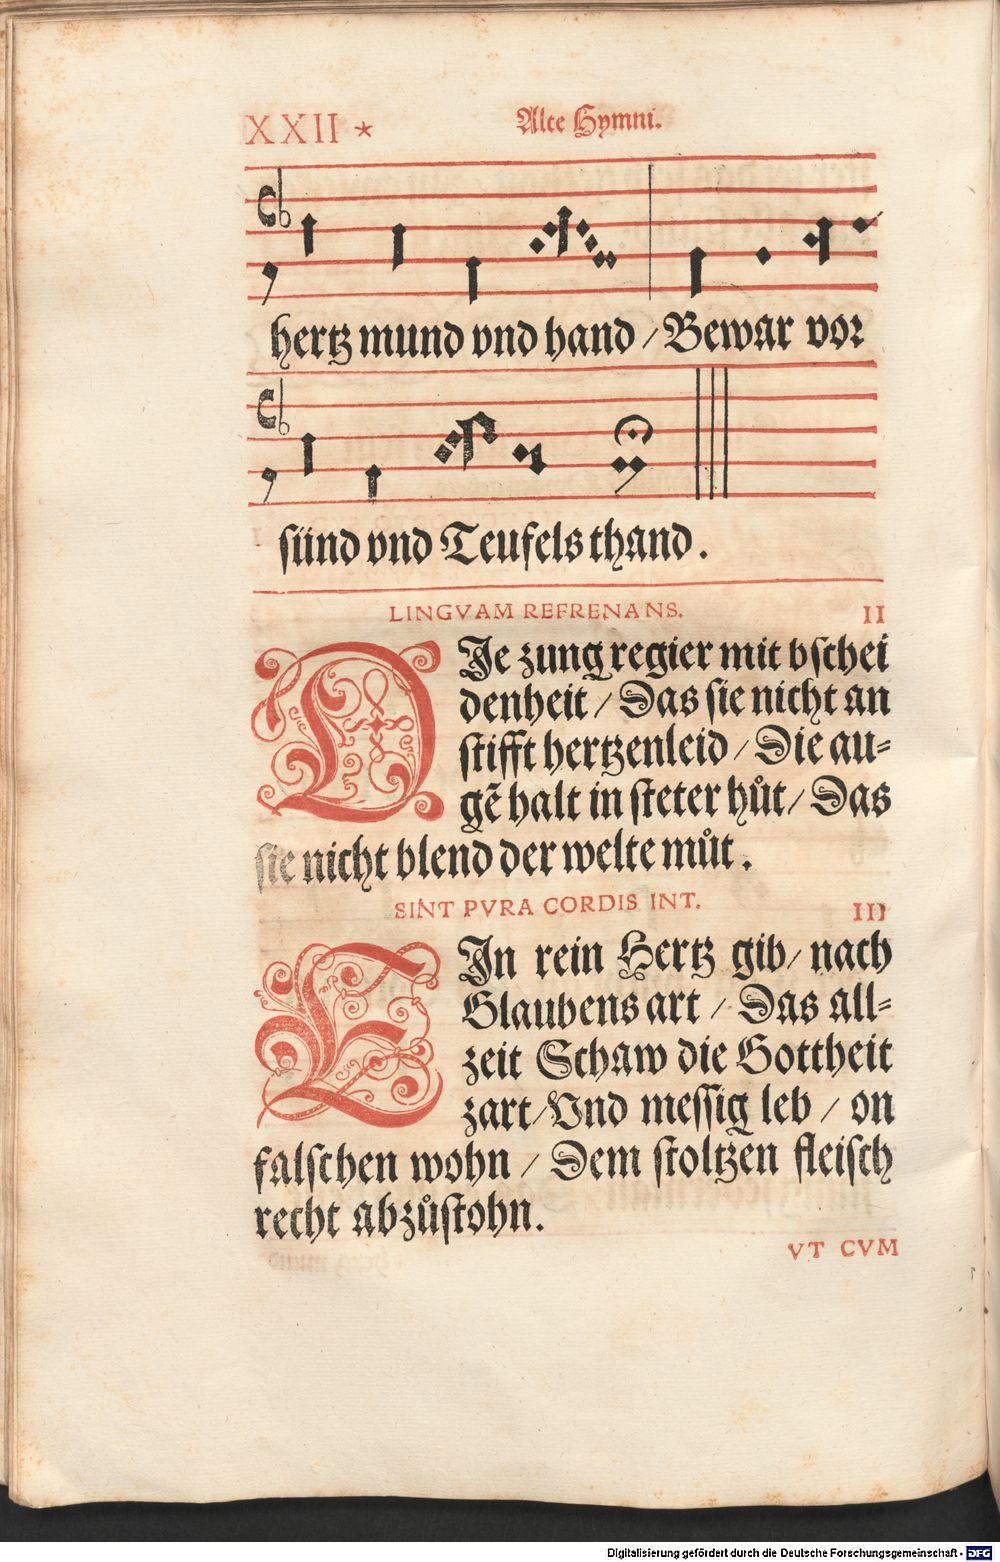 XXII * Alte Hymni.
hertz mund vnd hand / Bewar vor
sünd vnd Teufels thand.
LINGVAM REFRENANS. II
DIe zung regier mit bschei
denheit / Das sie nicht an
stifft hertzenleid / Die au=
gẽ halt in steter hůt / Das
sie nicht blend der welte můt.
SINT PVRA CORDIS INT. III
EIn rein Hertz gib / nach
Glaubens art / Das all=
zeit Schaw die Gottheit
zart / Vnd messig leb / on
falschen wohn / Dem stoltzen fleisch
recht abzůstohn.
VT CVM
Digitalisierung gefördert durch die Deutsche Forschungsgemeinschaft - DFG